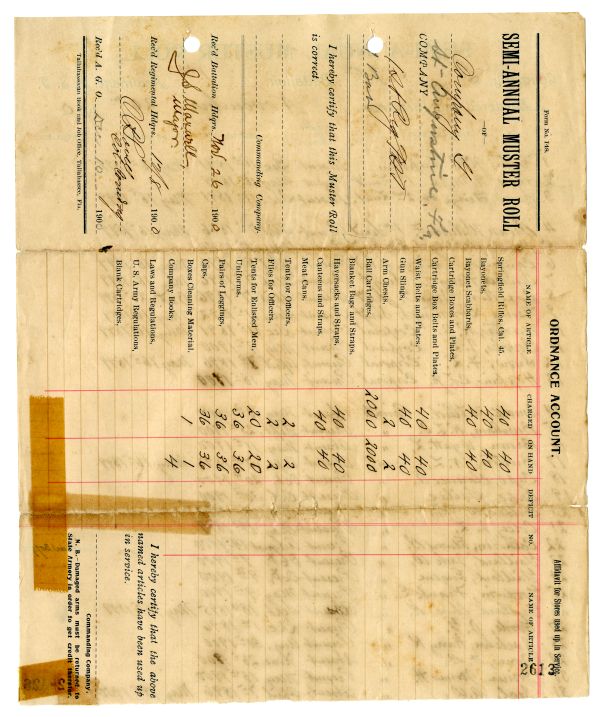 Form No. 148.
SEMI-ANNUAL MUSTER ROLL
—OF—
Company G
St. Augustine, Fla
COMPANY
I hereby certify that this Muster Roll
is correct.
Commanding Company.
Rec'd Battalion Hdqrs. Nov. 26 1900
J S Maxwell
Major
Rec'd Regimental Hdqrs. 12/8 1900
Rec'd A. G. O. Dec 10 1900
Tallahassean Book and Job Office, Tallahassee, Fla.
ORDNANCE ACCOUNT.
Affidavit for Stores used up in Service.
NAME OF ARTICLE CHARGED ON HAND DEFICIT NO. NAME OF ARTICLE
Springfield Rifles, Cal. 45, 40 40
Bayonets, 40 40
Bayonet Scabbards, 40 40
Cartridge Boxes and Plates,
Cartridge Box Belts and Plates,
Waist Belts and Plates, 40 40
Gun Slings, 40 40
Arm Chests, 2 2
Ball Cartridges, 2000 2000
Blanket Bags and Straps,
Haversacks and Straps, 40 40
Canteens and Straps, 40 40
Meat Cans,
Tents for Officers, 2 2
Flies for Officers, 2 2
Tents for Enlisted Men, 20 20
Uniforms, 36 36
Pairs of Leggings, 36 36
Caps, 36 36
Boxes Cleaning Material, 1 1
Company Books, 4
Laws and Regulations,
U. S. Army Regulations,
Blank Cartridges,
2613
I hereby certify that the above
named articles have been used up
in service.
Commanding Company.
N. B.—Damaged arms must be returned to
State Armory in order to get credit therefor.